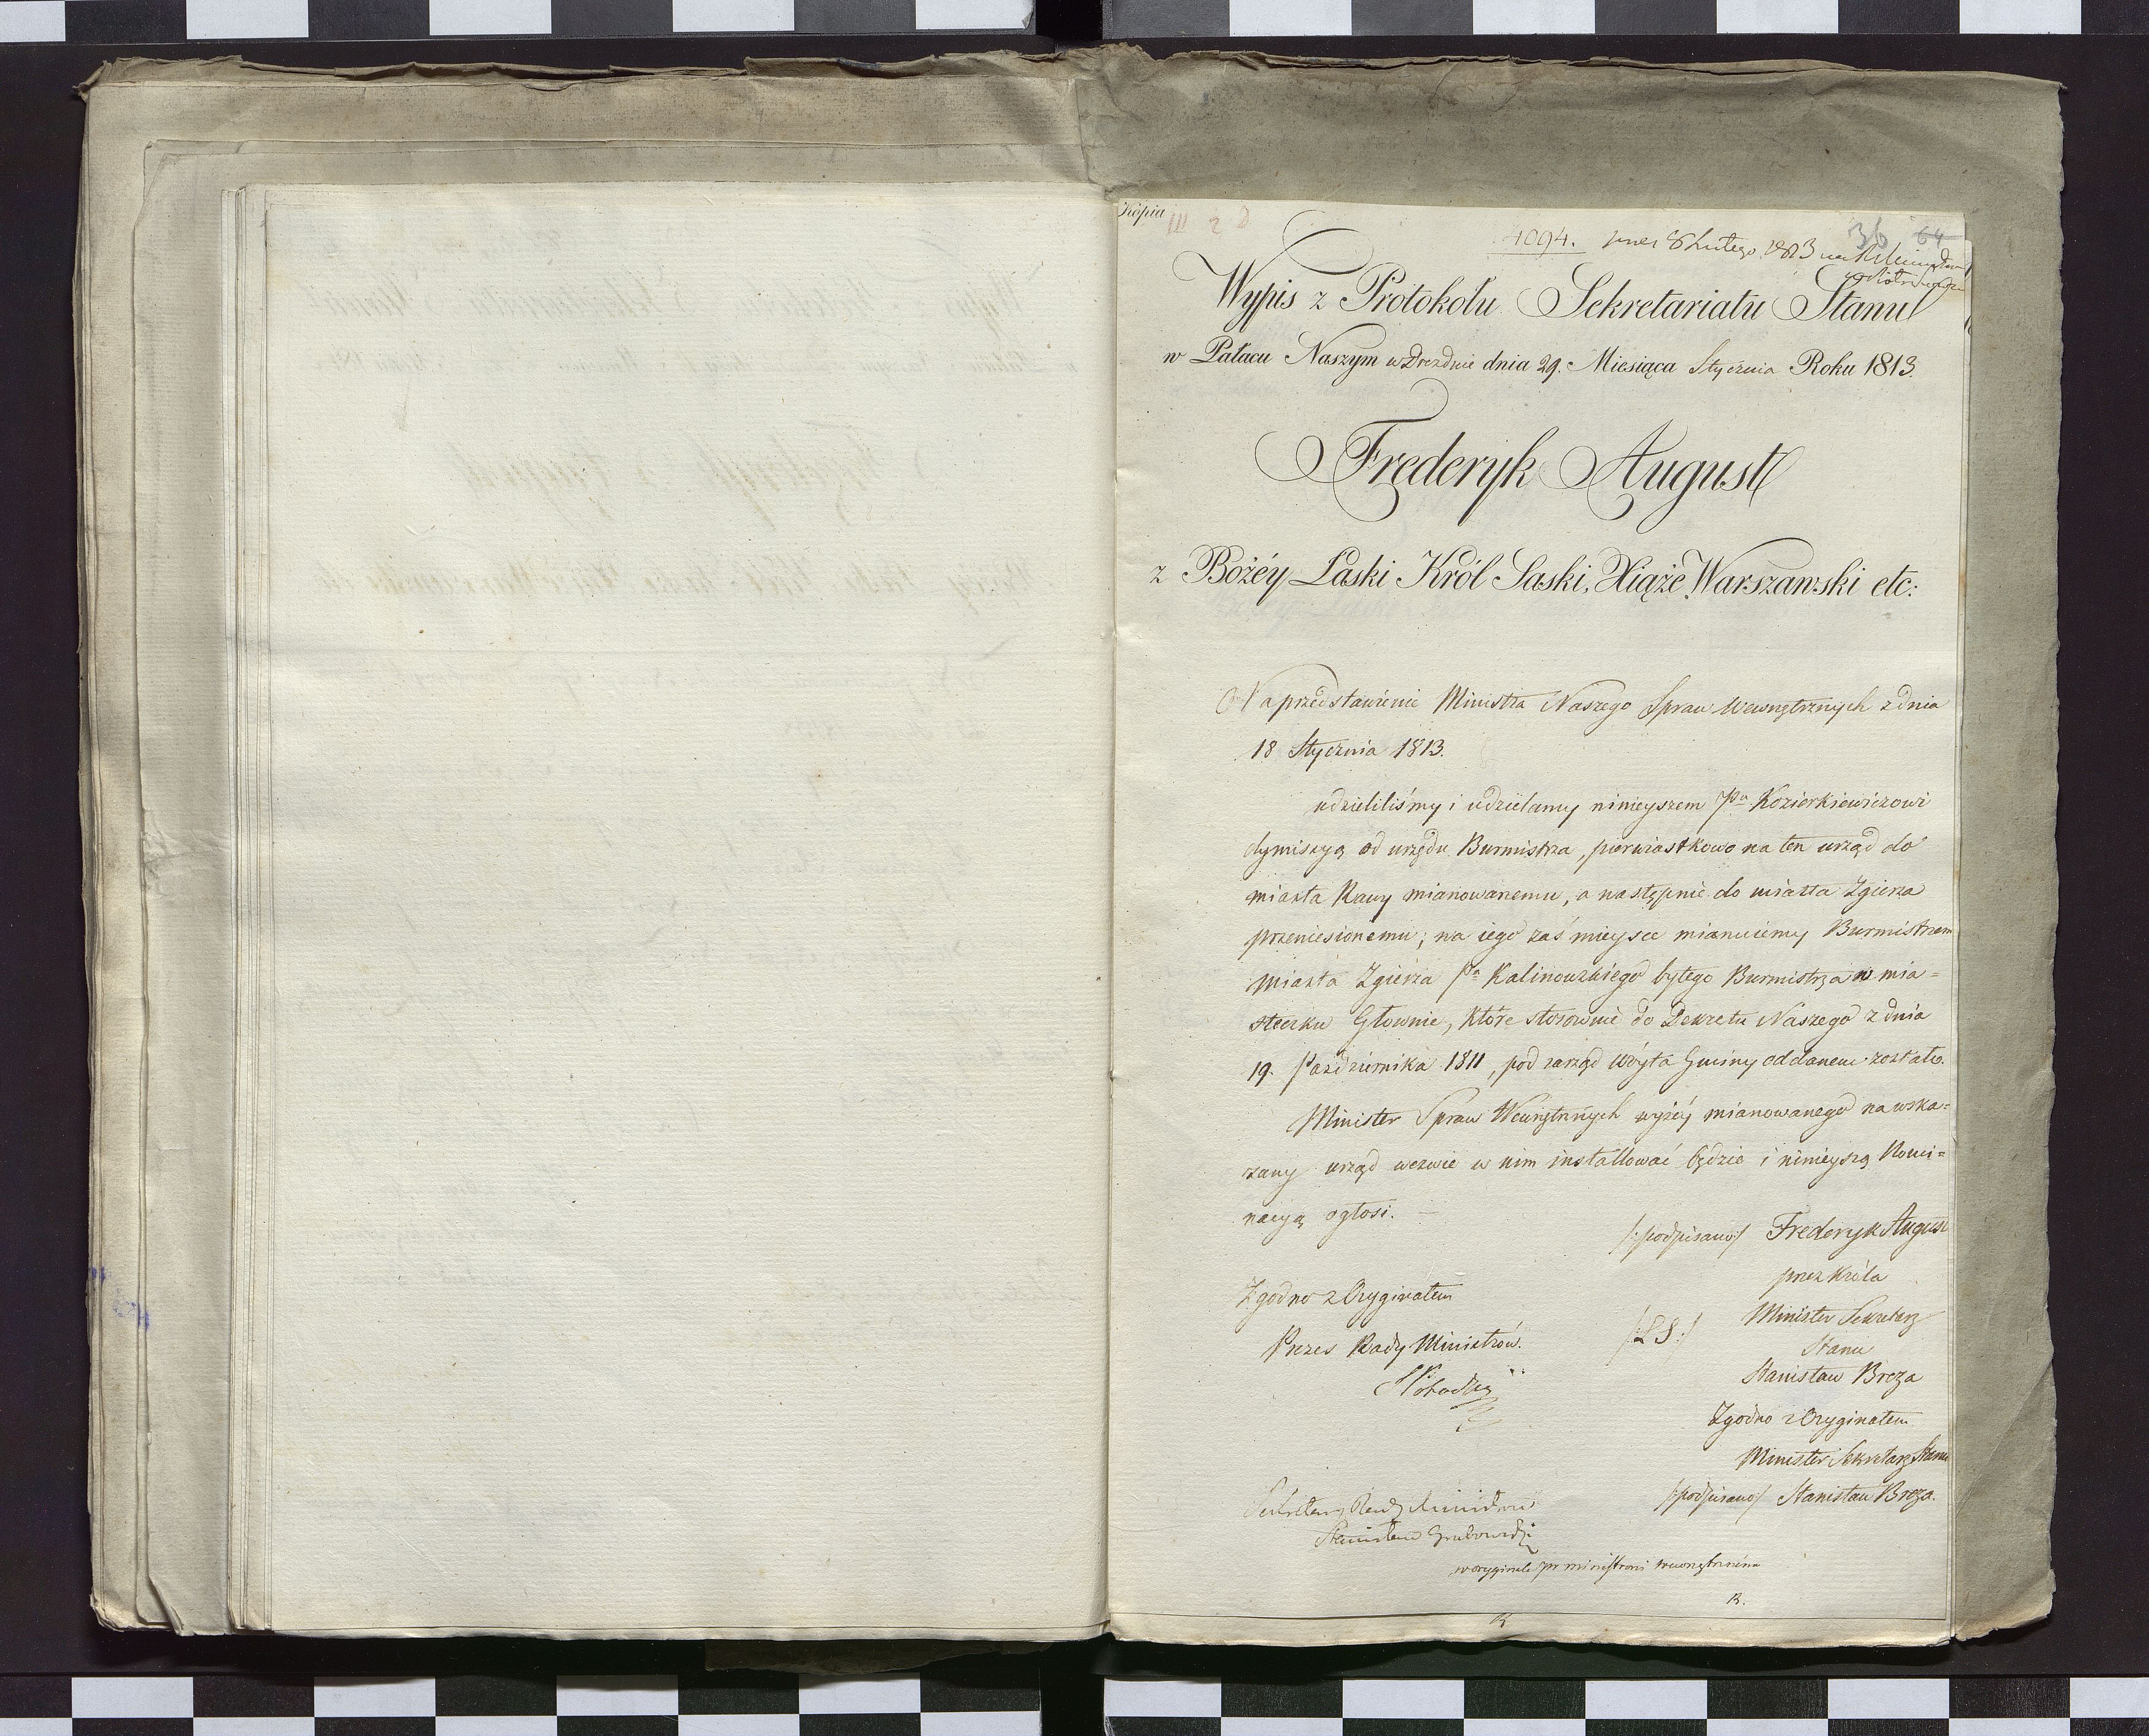 Kópia
III 2 D
36 64
4094. 8 Lutego 1813
Wypis z Protokołu Sekretariatu Stanu
w Pałacu Naszym w Dreznie dnia 29. Miesiąca Stycznia Roku 1813.
Frederyk August
z Bożéy Łaski Król Saski, Xiąże Warszawski etc:
Na przedstawienie Ministra Naszego Spraw Wewnętrznych z dnia
18 Stycznia 1813.
udzieliliśmy i udzielamy ninieyszem Pnu Kozierkiewiczowi
dymissyą od urzędu Burmistrza, pierwiastkowo na ten urząd do
miasta Rawy mianowanemu, a następnie do miasta Zgierza
przeniesionemu; na iego zaś mieysce mianuiemy Burmistrzem
miasta Zgierza Pna Kalinowskiego byłego Burmistrza w mia=
steczku Głownie, które stosownie do Dekretu Naszego z dnia
19. Października 1811, pod zarząd Wóyta Gminy oddanem zostało.
Minister Spraw Wewnętrznych wyżéy mianowanego na wska=
zany urząd wezwie w nim installować będzie i ninieyszą Nomi=
nacyą ogłosi.
/:podpisano:/ Frederyk August
przez Króla
Minister Sekretarz
Stanu
/:L S:/
Stanisław Breza
Zgodno z Oryginałem
Minister Sekretarz Stanu
/:podpisano:/ Stanisław Breza.
Zgodno z Oryginałem
Prezes Rady Ministrów.
Sekretarz Rady Ministrów
Stanisław Grabowski
w oryginale ministrowi wewnętrznemu
R.